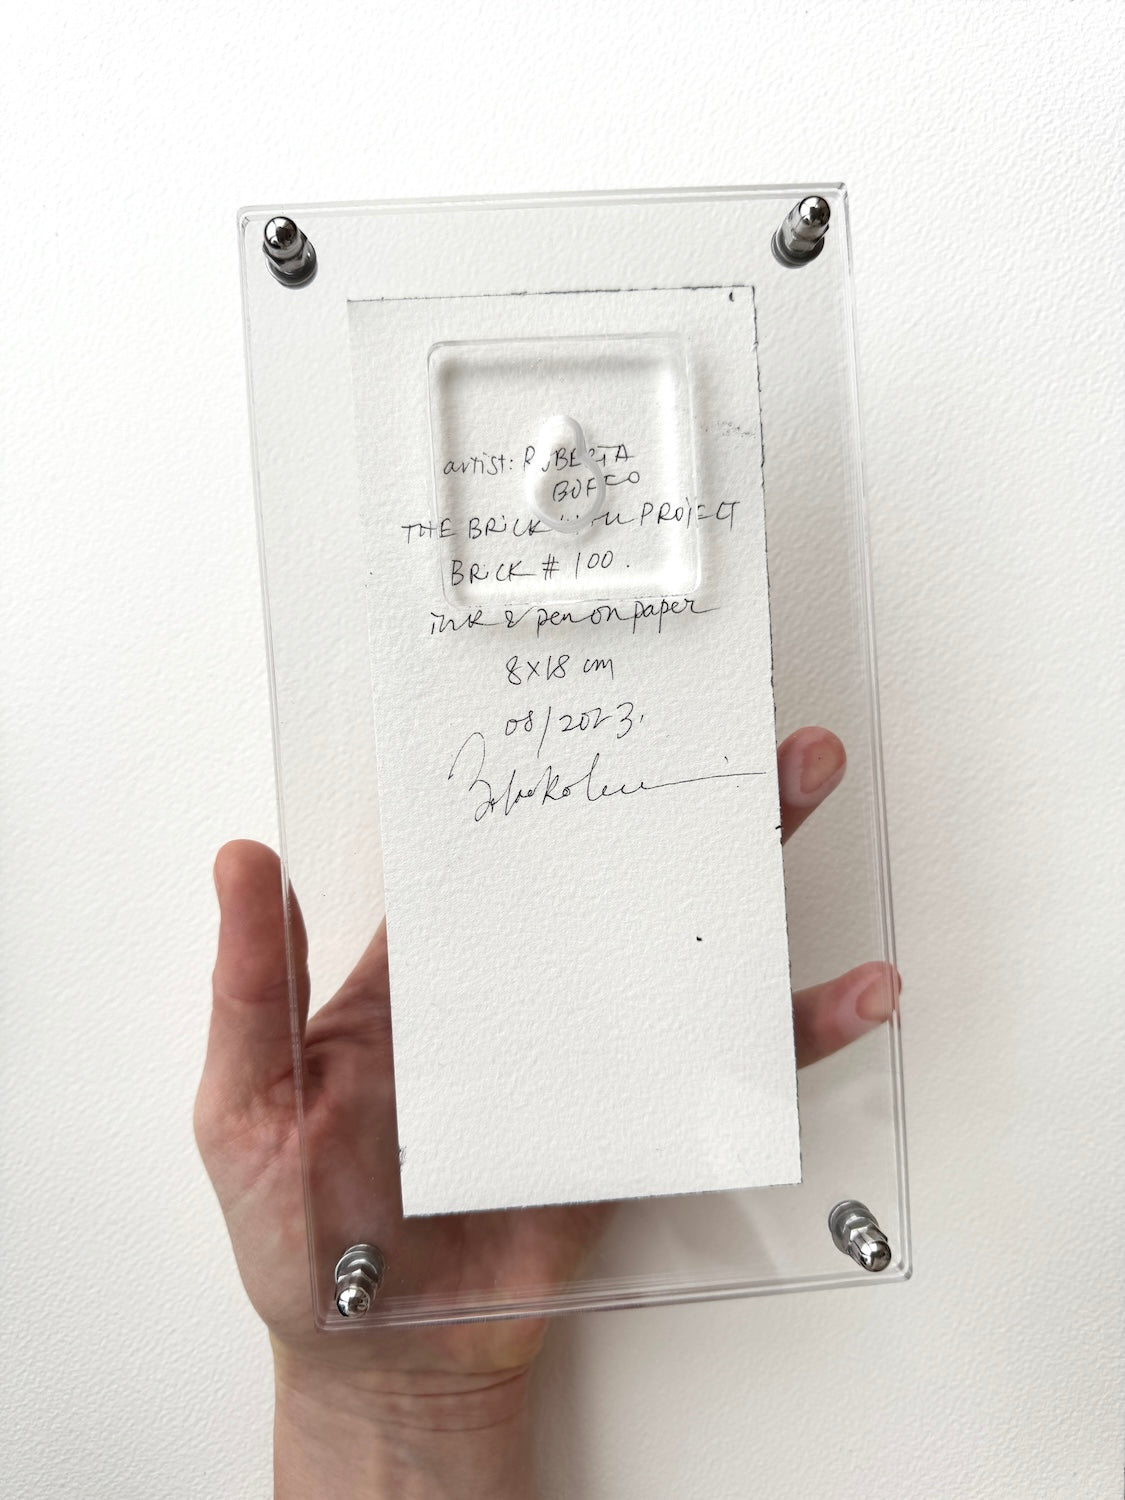 artist: RUBERTA
BOFFO
THE BRICK PROJECT
BRICK # 100.
ink & pen on paper
8x18 cm
08/2023.